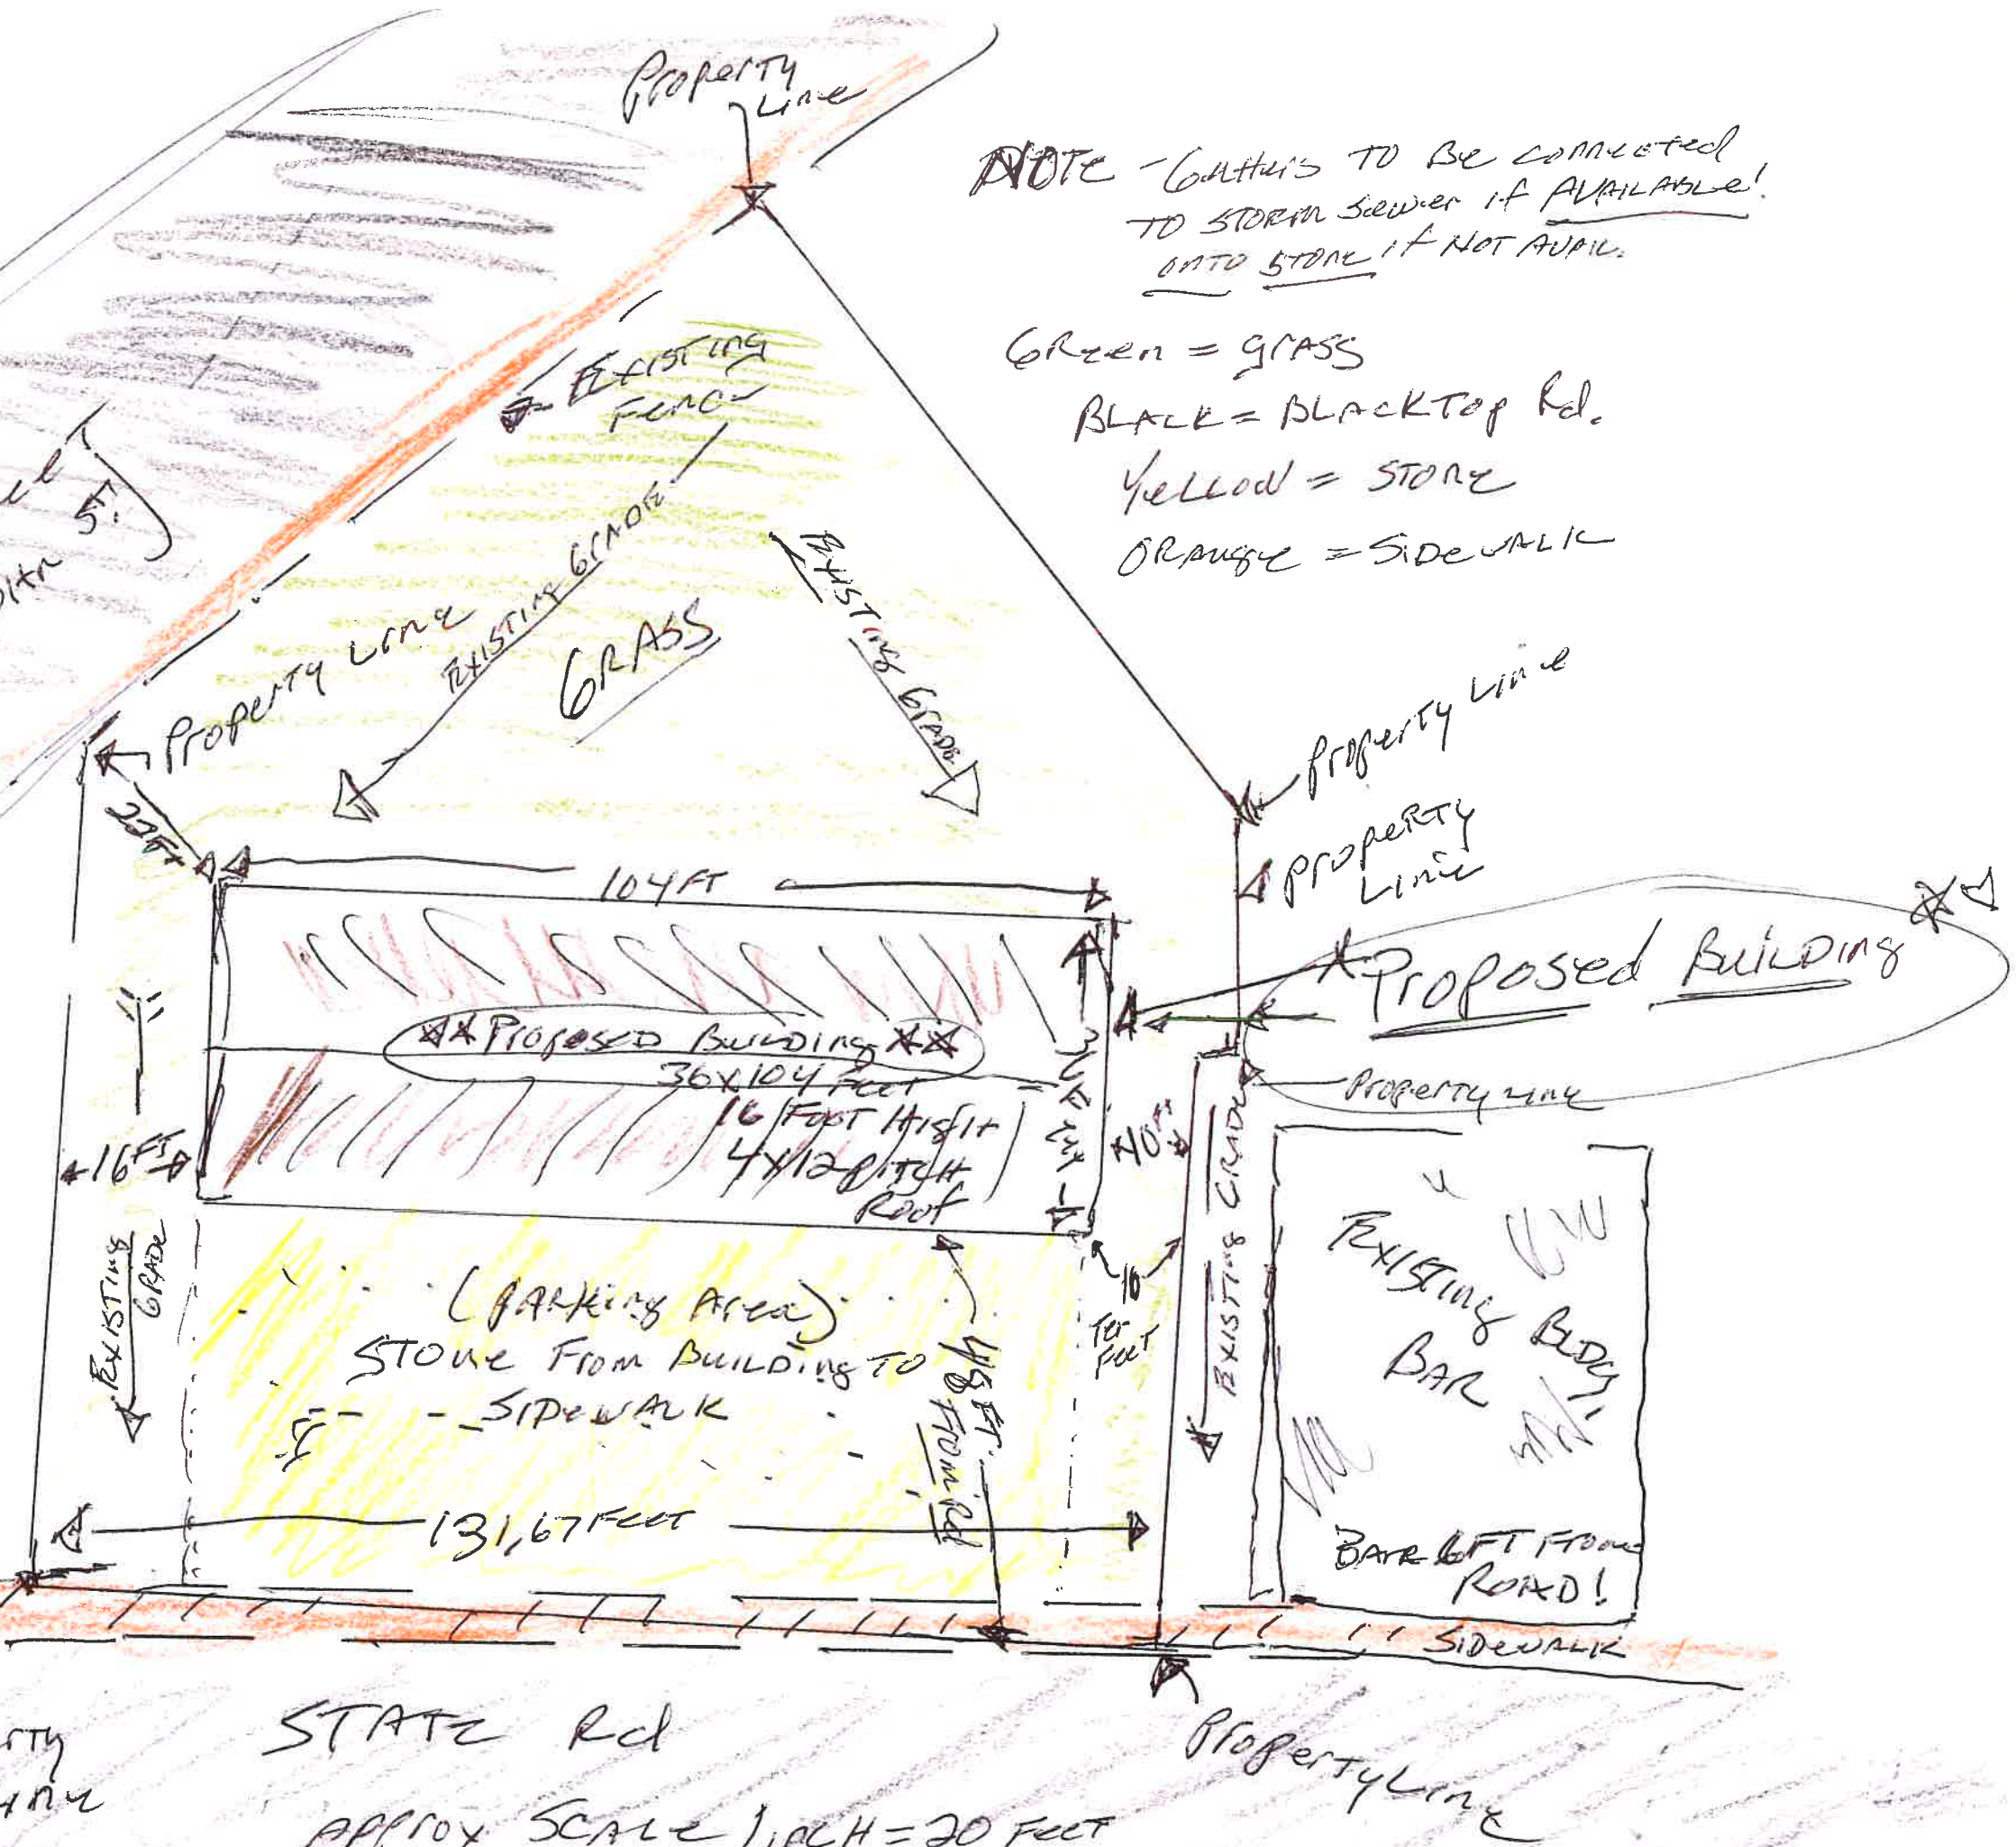 Property
Line
NOTE - Gutters TO Be connected
TO STORM Sewer if AVAILABLE!
ONTO STONE if NOT AVAIL.
GReen = grASS
BLACK = BLACKTop Rd.
Yellow = STONE
ORANGE = SiDewALK
Existing
Fence
5T.
Property Line
Existing GrADE
GRASS
Existing GrADE
Property Line
Property
Line
22Ft
104 FT
Proposed Building
Proposed Building
36x104 Feet
16 Foot High
4x12 pitch
Roof
Property Line
16 FT
10 FT
Existing GRADE
Existing
GRADE
(PArking Area)
STONE From Building TO
SiDewALK
48 FT.
From Rd
10
Ten
Feet
Existing BLDG.
BAR
131,67 Feet
BAR 6FT From
ROAD!
SIDewALK
STATE Rd
Property Line
rty
ine
Approx SCALE 1 incH = 20 Feet